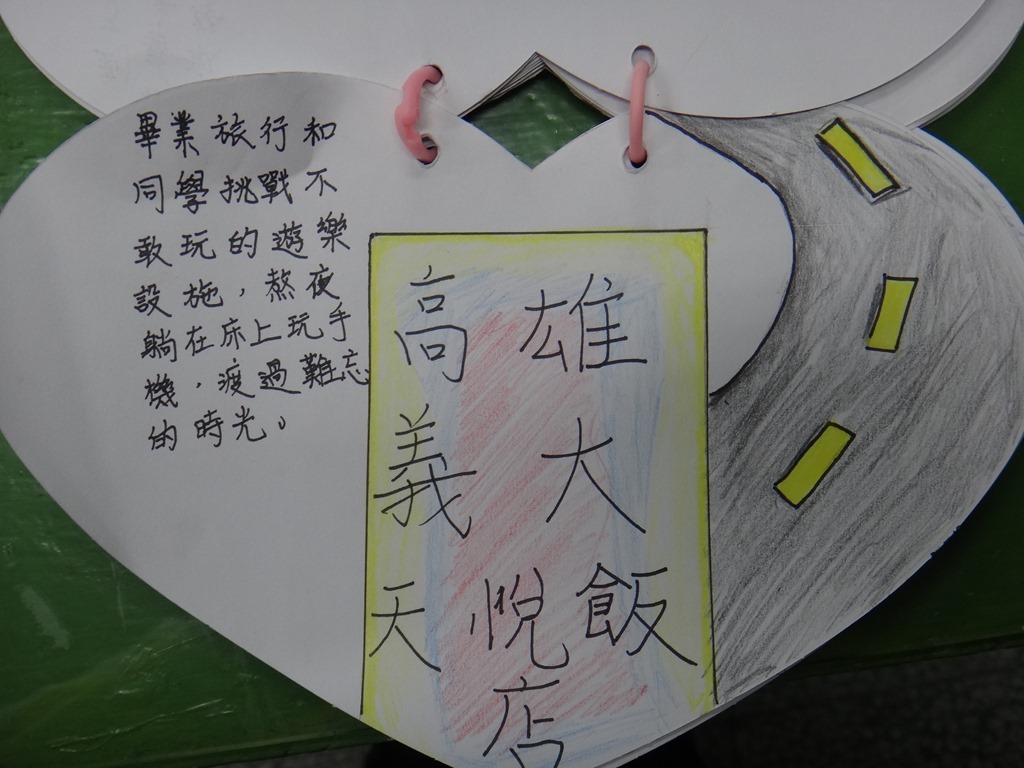 畢業旅行和
同學挑戰不
敢玩的遊樂
設施，熬夜
躺在床上玩手
機，渡過難忘
的時光。
高雄
義大
天悅飯
店